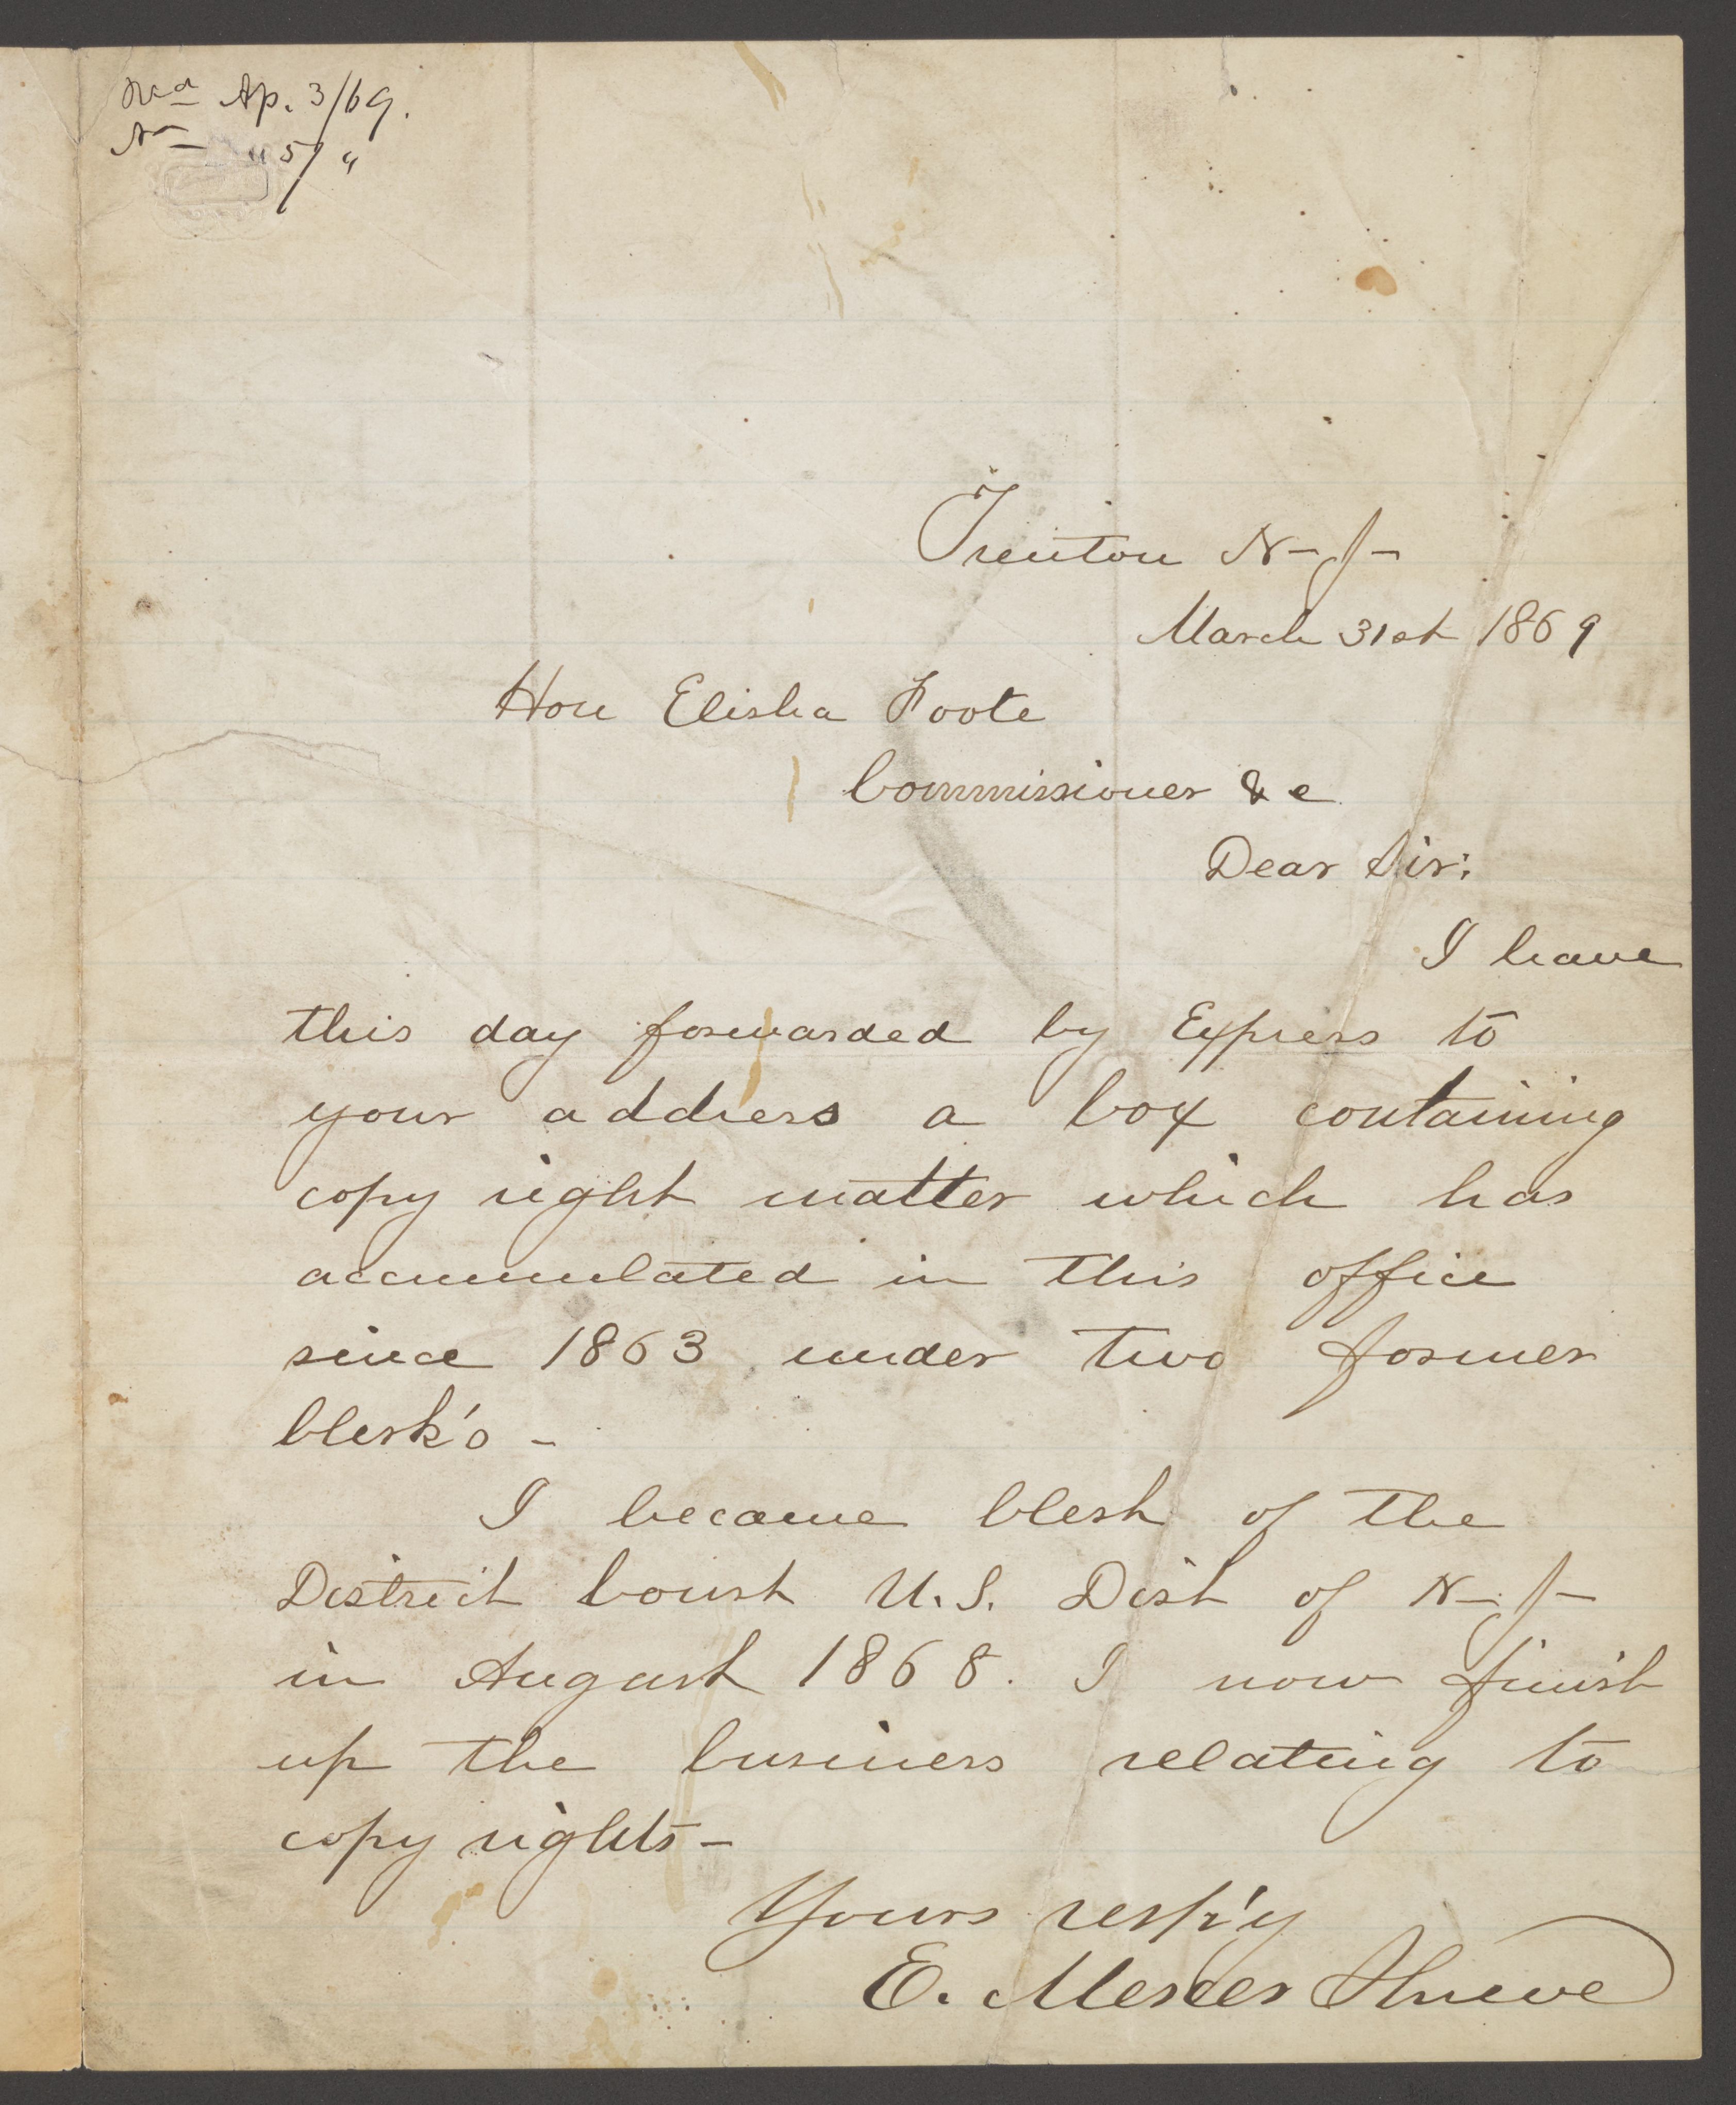 Recd Ap. 3/69.
An " 5/ "
Trenton N-J-
March 31st 1869
Hon Elisha Foote
Commissioner &c
Dear Sir:
I have
this day forwarded by Express to
your address a box containing
copy right matter which has
accumulated in this office
since 1863 under two former
Clerk's -
I became Clerk of the
District Court U.S. Dist of N-J-
in August 1868. I now finish
up the business relating to
copy rights-
Yours resp'y
E. Mercer Shreve